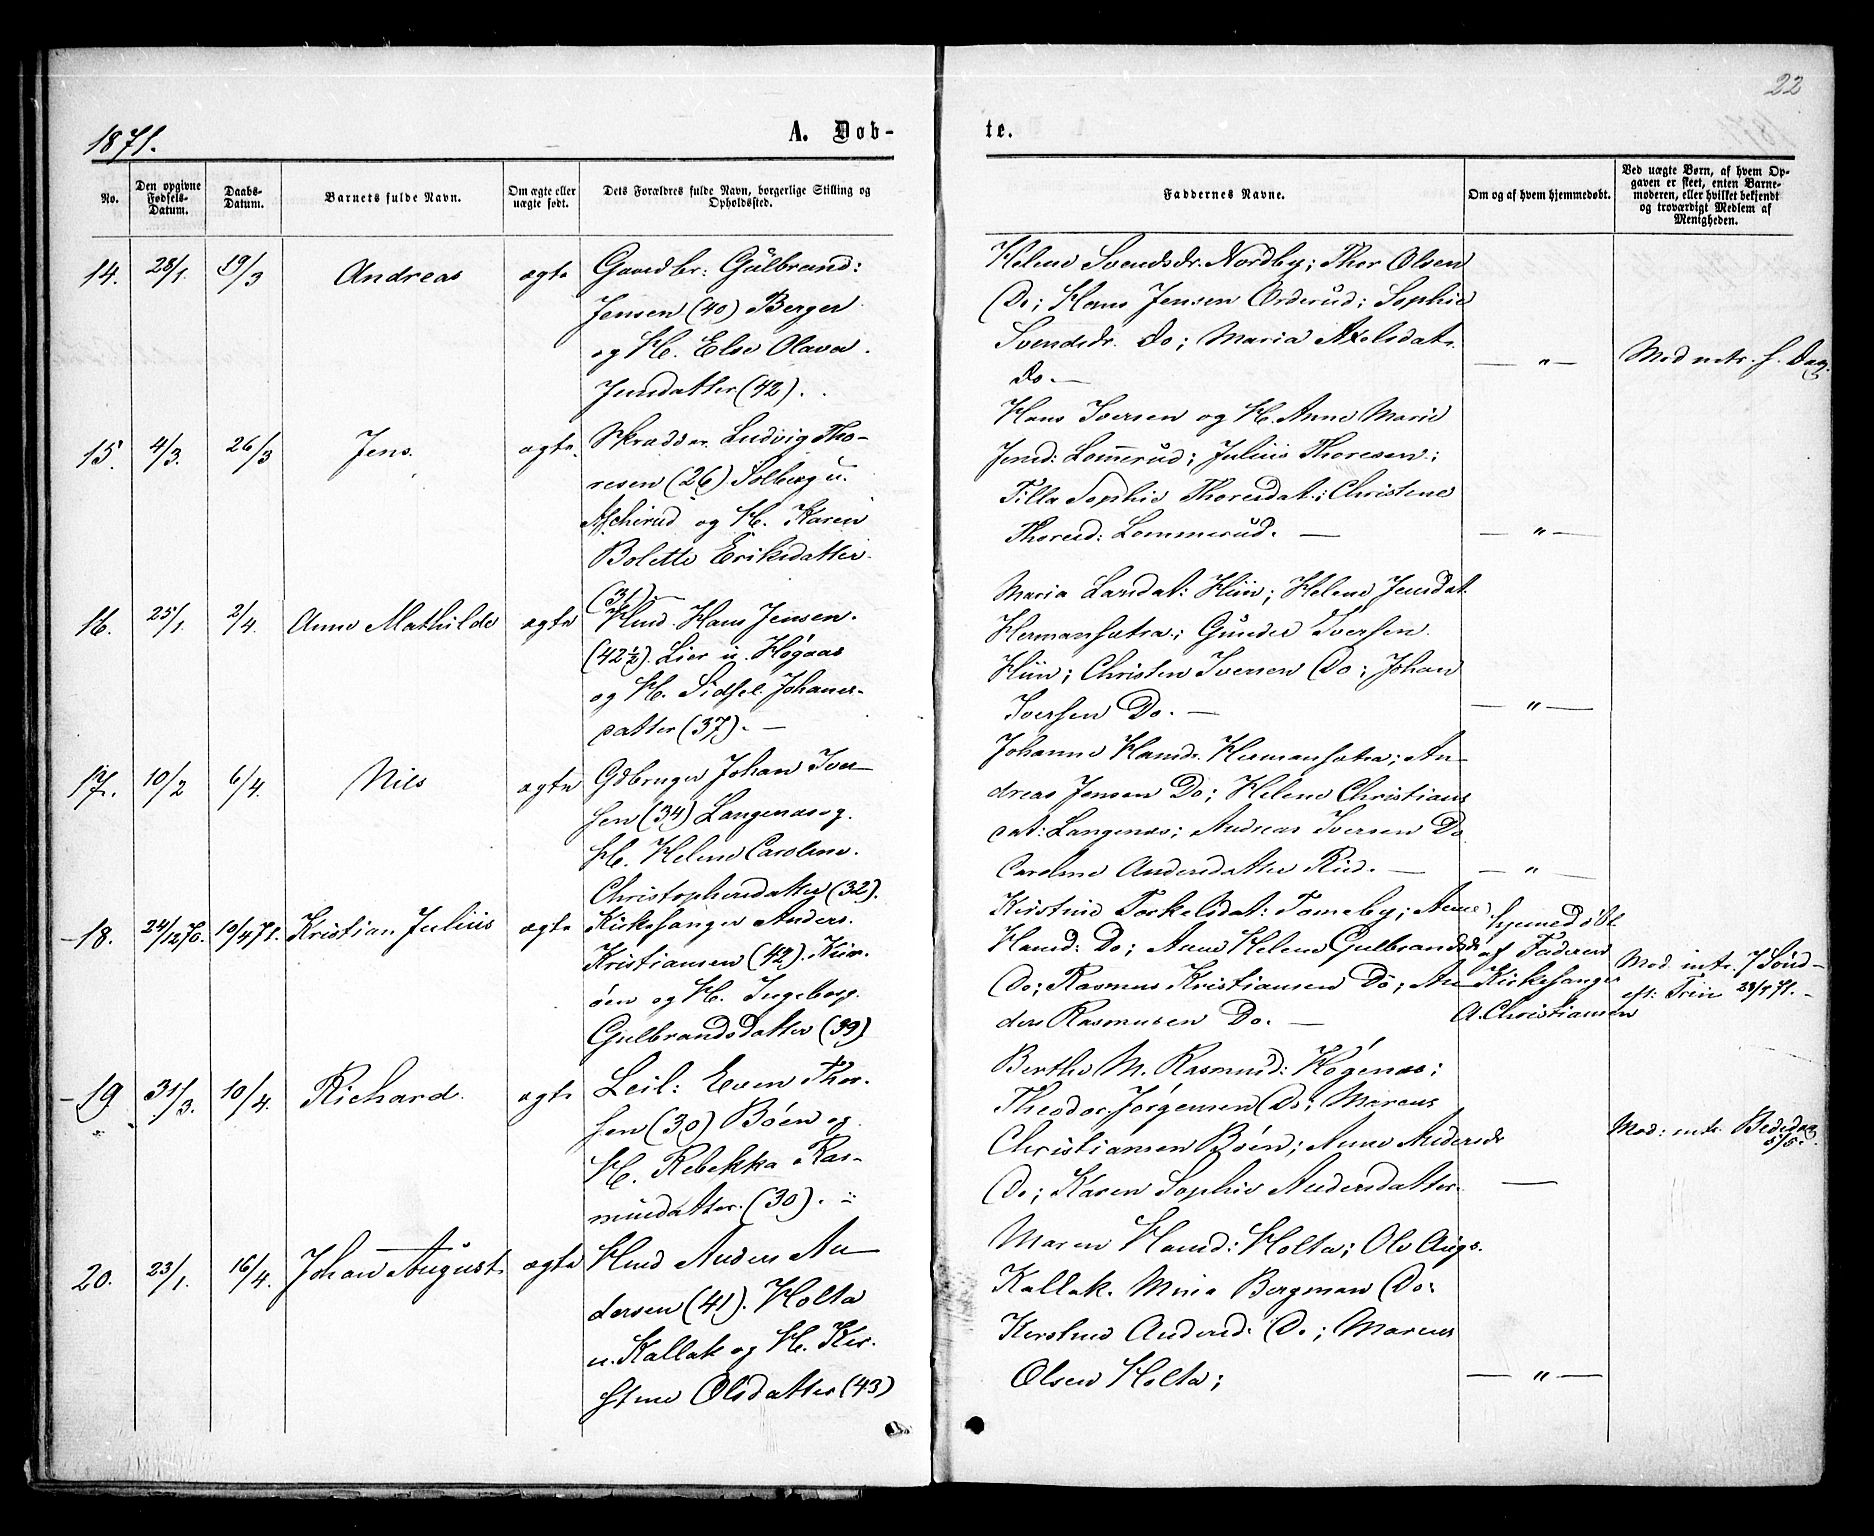 22
1871.
A. Døb-
te.
No.
Den opgivne Fødsels-Datum.
Daabs-Datum.
Barnets fulde Navn.
Om ægte eller uægte født.
Dets Forældres fulde Navn, borgerlige Stilling og Opholdssted.
Faddernes Navne.
Om og af hvem hjemmedøbt.
Ved uægte Børn, af hvem Op-
gaven er skeet, enten Barne-
moderen, eller hvilket bekjendt
og troværdigt Medlem af
Menigheden.
14. 28/1. 19/3 Andreas ægte Gaardbr: Gulbrand:
Jensen (40) Berger
og H. Else Olava
Jensdatter (42).
Helene Svendsdr. Nordby; Thor Olsen
Do; Hans Jensen Orderud; Sophie
Svendsdr. Do; Maria Axelsdat.
Do. —
— " —
Mod. intr. s. Dag.
15. 4/3. 26/3 Jens. ægte. Skrædder Ludvig Tho-
resen (26) Solberg u.
Askerud og H. Karen
Bolette Eriksdatter
(31) —
Hans Iversen og H. Anne Marie
Jensd: Lom̄erud; Julius Thoresen;
Tilla Sophie Thoresdat.; Christine
Thoresd: Lommerud. —
— " —
16. 25/1. 2/4. Anne Mathilde ægte Husd. Hans Jensen.
(42½). Lier u. Høgaas
og H. Sidsel Johanes-
datter (37). —
Maria Larsdat: Hiin; Helene Jensdat.
Hermansætra; Gunder Iversen
Hiin; Christen Iversen Do; Johan
Iversen Do. —
— " —
17. 10/2 6/4. Nils ægte Gdbruger Johan Iver-
sen (34) Langenæs og
H. Helene Caroline
Christophersdatter (32).
Johanne Hansdr. Hermansætra; An-
dreas Jensen Do; Helene Christians
dat: Langenæs; Andreas Iversen Do
Caroline Andersdatter Rud. —
— " —
18. 24/12 70. 10/4 71. Kristian Julius ægte Kirkesanger Anders
Kristiansen (42).
øen og H. Ingeborg
Gulbrandsdatter (39)
Kirstine Torkelsdat: Tomeby; Anne
Hansd: Do; Anne Helene Gulbrandsdr
Do; Rasmus Kristiansen Do; An-
ders Rasmussen Do. —
hjemedøbt
af Faderen
Kirkesanger
A. Christiansen
Mod. intr. 7 Sønd-
eft: Trin 23/7 71. —
19 31/3. 10/4. Richard. ægte Leil: Even Thor-
sen (30) Bøen og
H. Rebekka Ras-
musdatter. (30).
Berthe M. Rasmusd: Høgenæs;
Theodor Jørgensen Do; Marcus
Christiansen Bøen; Anne Andersdr
Do; Karen Sophie Andersdatter.
—
Mod: intr. Bededag
5/5.
20. 23/1. 16/4. Johan August ægte Husd Anders An-
dersen (41). Holta
u. Kallak og H. Kir-
stine Olsdatter (43)
Maren Hansd: Holta; Ole Augs.
Kallak. Mina Bergman Do;
Kirstine Andersd: Do; Marcus
Olsen Holta;
— " —